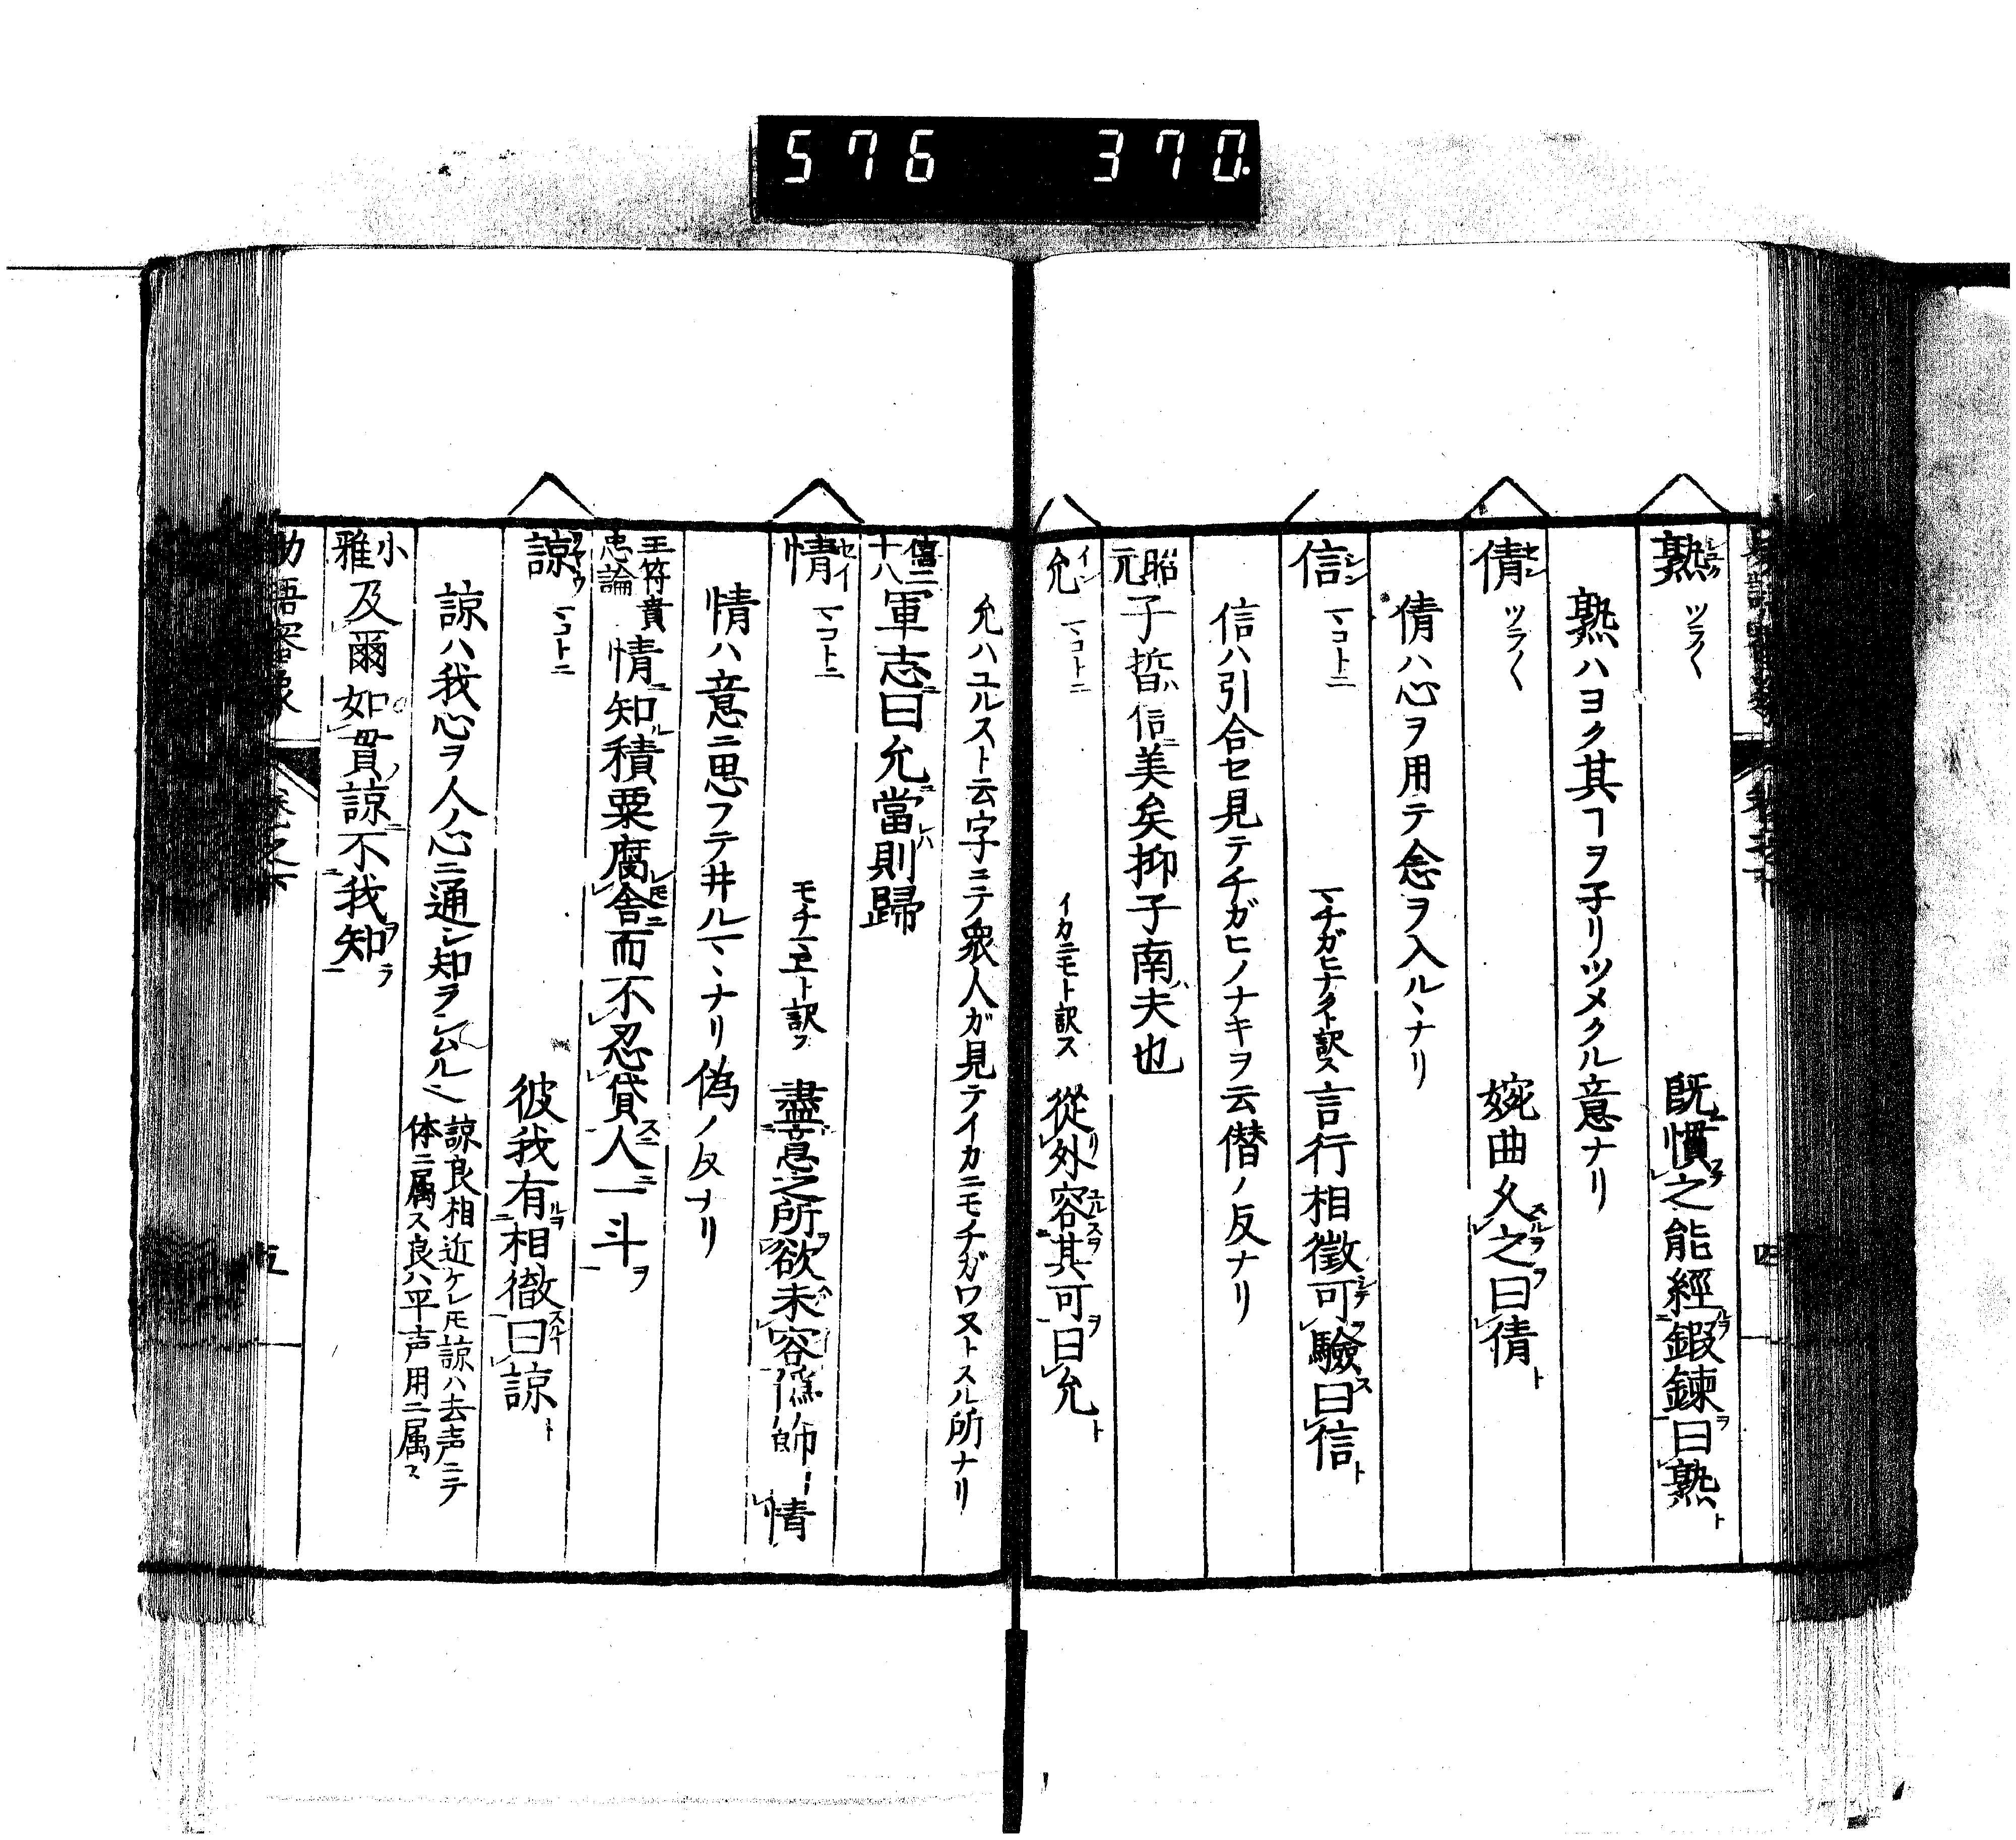 576 370.
熟 ジュク ツラ〱 既慣之能經鍛鍊曰熟
熟ハヨク其ヿヲ子リツメクル意ナリ
倩 セン ツラ〱 婉曲久之曰倩
倩ハ心ヲ用テ念ヲ入ルヽナリ
信 シン マコトニ マチガヒナクト訳ス 言行相徵可驗曰信
信ハ引合セ見テチガヒノナキヲ云僣ノ反ナリ
昭元 子晳信美矣抑子南夫也
允 イン マコトニ イカニモト訳ス 從外容其可曰允
允ハユルスト云字ニテ衆人ガ見テイカニモチガワヌトスル所ナリ
僖二十八 軍志曰允當則歸
情 セイ マコトニ モチマヱト訳ス 盡意之所欲未容偽飾曰情
情ハ意ニ思フテ井ルマヽナリ偽ノ反ナリ
王符貴忠論 情知積粟腐舎而不忍貸人一斗
諒 リヤウ マコトニ 彼我有相徹曰諒
諒ハ我心ヲ人ノ心ニ通シ知ラシムル 諒良相近ケレ𪜈諒ハ去声ニテ
体ニ属ス良ハ平声用ニ属ス
小雅 及爾如貫諒不我知
助語審象 巻之下 五